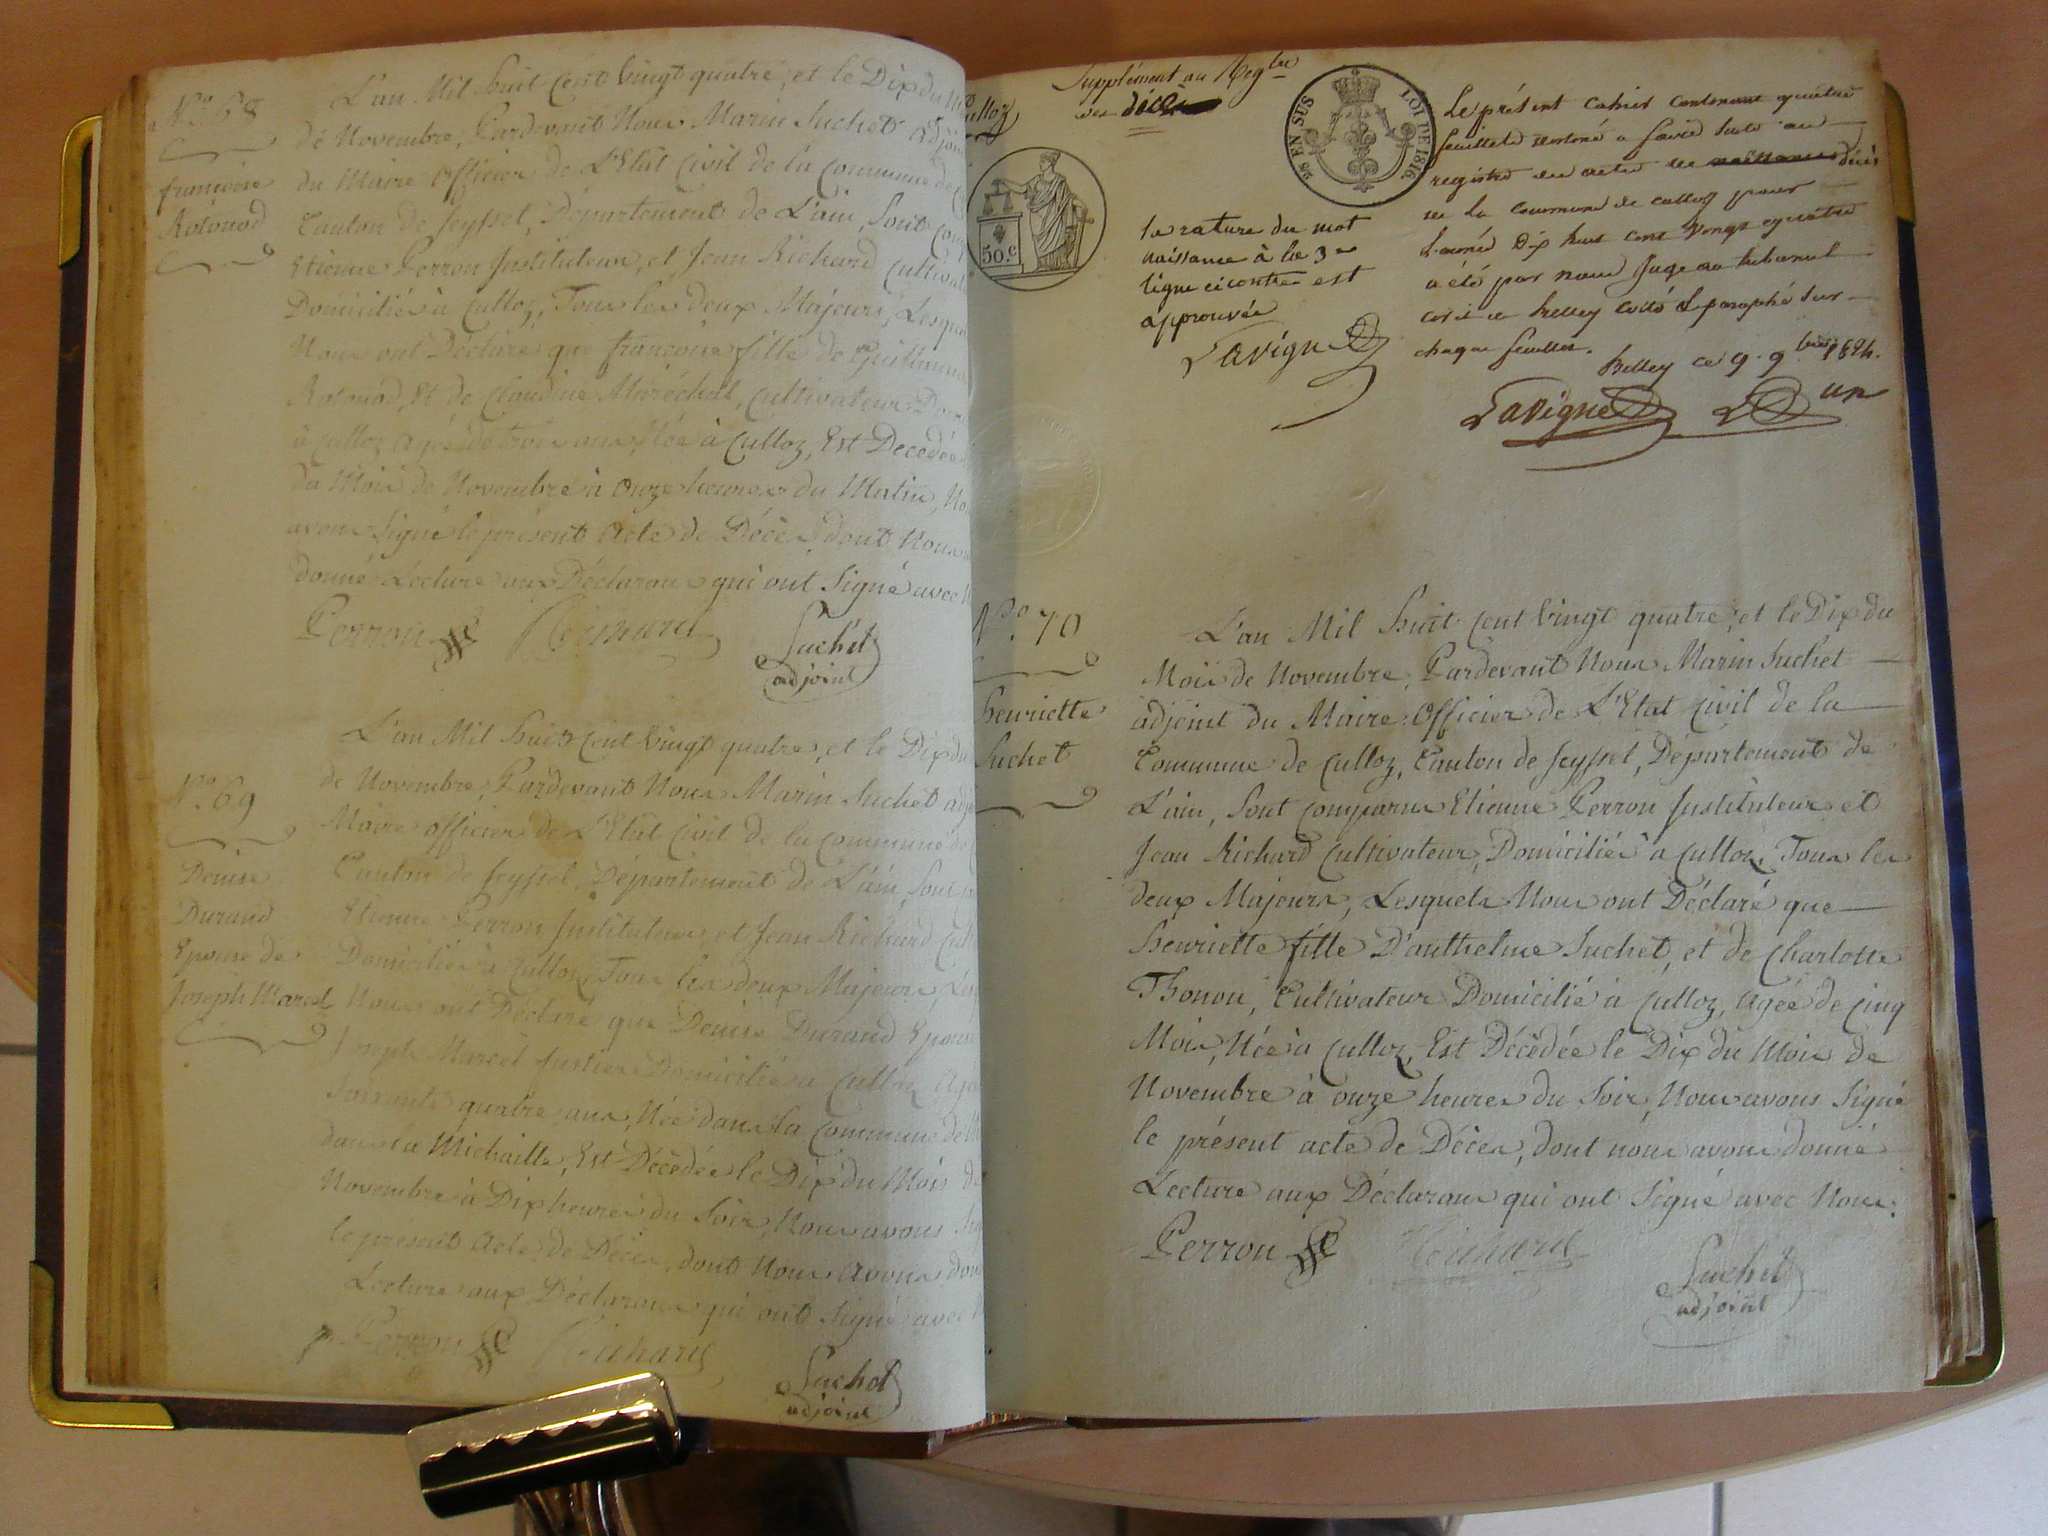 N.o 68
françoise
Rotonod
L'an Mil huit Cent Vingt quatre, et le Dix du
de Novembre, Pardevant Nous Marin Suchet Adjoint
du Maire Officier de L'Etat Civil de la Commune de
Canton de Seyssel, Département de L'ain, Sont
Etienne Perron Instituteur, et Jean Richard Cultivat
Domiciliés à Culloz, Tous les deux Majeurs, Lesque
Nous ont Déclaré que françoise fille de Guillaume
Rotonod, Et de Claudine Maréchal, Cultivateur
à Culloz Agée de trois ans, Née à Culloz, Est Decédée
du Mois de Novembre à Onze heures du Matin, Nous
avons Signé le présent Acte de Décès, dont Nous
donné Lecture aux Déclarans qui ont Signé avec
Perron Richard Suchet
adjoint
N.o 69
Denise
Durand
Epouse de
Joseph Marcel
L'an Mil huit Cent Vingt quatre, et le Dix du
de Novembre, Pardevant Nous Marin Suchet adj
Maire officier de L'Etat Civil de la Commune de
Canton de Seyssel, Département de L'ain, Sont
Etienne Perron Instituteur, et Jean Richard Cult
Domiciliés à Culloz, Tous les deux Majeurs, Les
Nous ont Déclaré que Denise Durand Epouse
Joseph Marcel Domicilié à Culloz Agée
Soixante quatre ans, Née dans la Commune de
dans la Michaille, Est Décédée le Dix du Mois de
Novembre à Dix heures du Soir, Nous avons
le présent Acte de Décès, dont Nous Avons don
Lecture aux Déclarans qui ont Signé avec
Perron Richard
Suchet
adjoint
Culloz
Supplément au Reg.tre
des décès
50.c
28 EN SUS
LOI DE 1816
la rature du mot
naissance à la 3e
ligne ci contre est
approuvée
Lavigne
Le présent cahier contenant quatre
feuillets destiné à faire suite au
registre des actes de naissances décès
de la commune de culloz pour
l'année dix huit cent vingt quatre
a été par nous Juge au tribunal
civil de Belley coté & paraphé sur
chaque feuillet.
Belley ce 9 9.bre 1824.
Lavigne
un
N.o 70
Henriette
Suchet
L'an Mil huit Cent Vingt quatre, et le Dix du
Mois de Novembre, Pardevant Nous Marin Suchet
adjoint du Maire Officier de L'Etat Civil de la
Commune de Culloz, Canton de Seyssel, Département de
L'ain, Sont Comparus Etienne Perron Instituteur et
Jean Richard Cultivateur, Domiciliés à Culloz, Tous les
deux Majeurs, Lesquels Nous ont Déclaré que
henriette fille D'anthelme Suchet, et de Charlotte
Thonon, Cultivateur Domicilié à Culloz, Agée de Cinq
Mois, Née à Culloz, Est Décédée le Dix du Mois de
Novembre à onze heures du Soir, Nous avons Signé
le présent acte de Décès, dont nous avons donné
Lecture aux Déclarans qui ont Signé avec Nous.
Perron Richard
Suchet
adjoint